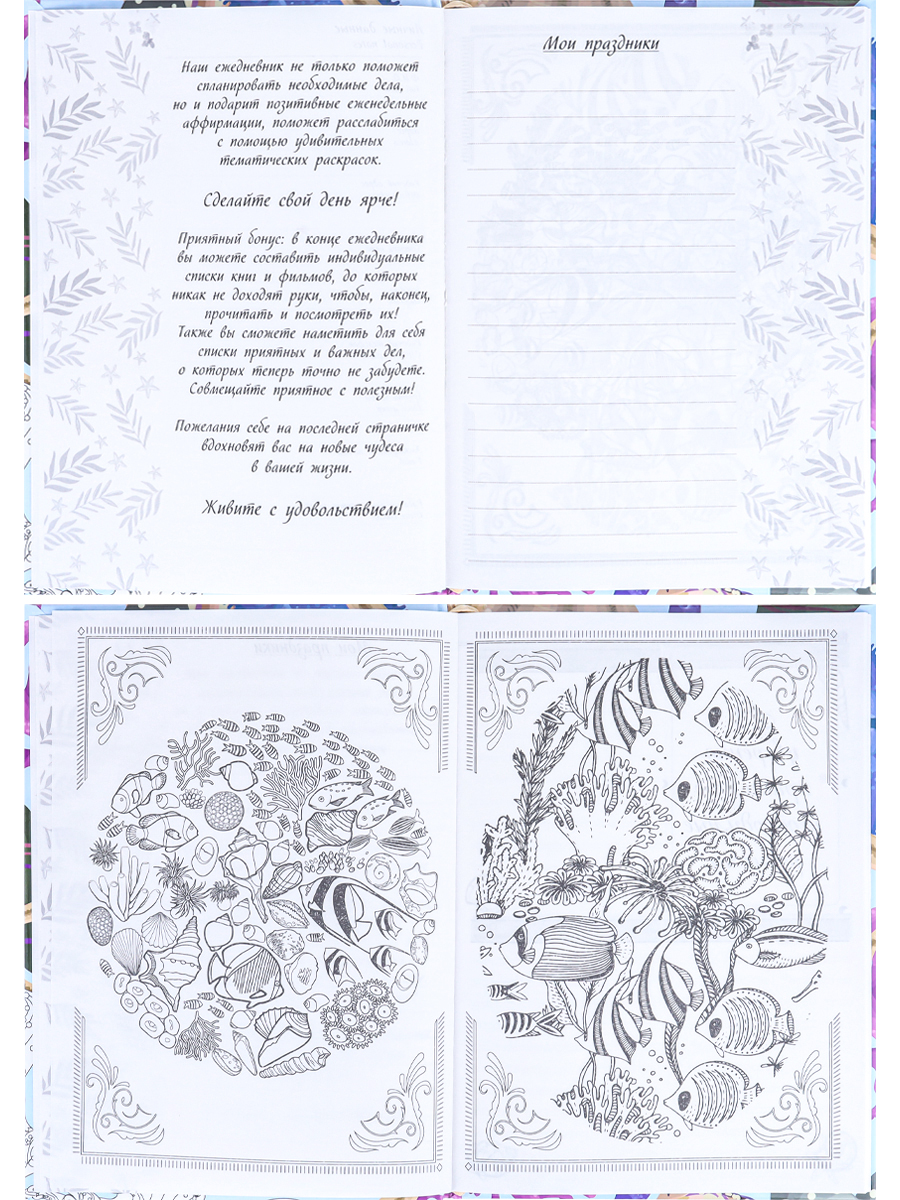 Наш ежедневник не только поможет
спланировать необходимые дела,
но и подарит позитивные еженедельные
аффирмации, поможет расслабиться
с помощью удивительных
тематических раскрасок.
Сделайте свой день ярче!
Приятный бонус: в конце ежедневника
вы можете составить индивидуальные
списки книг и фильмов, до которых
никак не доходят руки, чтобы, наконец,
прочитать и посмотреть их!
Также вы сможете наметить для себя
списки приятных и важных дел,
о которых теперь точно не забудете.
Совмещайте приятное с полезным!
Пожелания себе на последней страничке
вдохновят вас на новые чудеса
в вашей жизни.
Живите с удовольствием!
Мои праздники